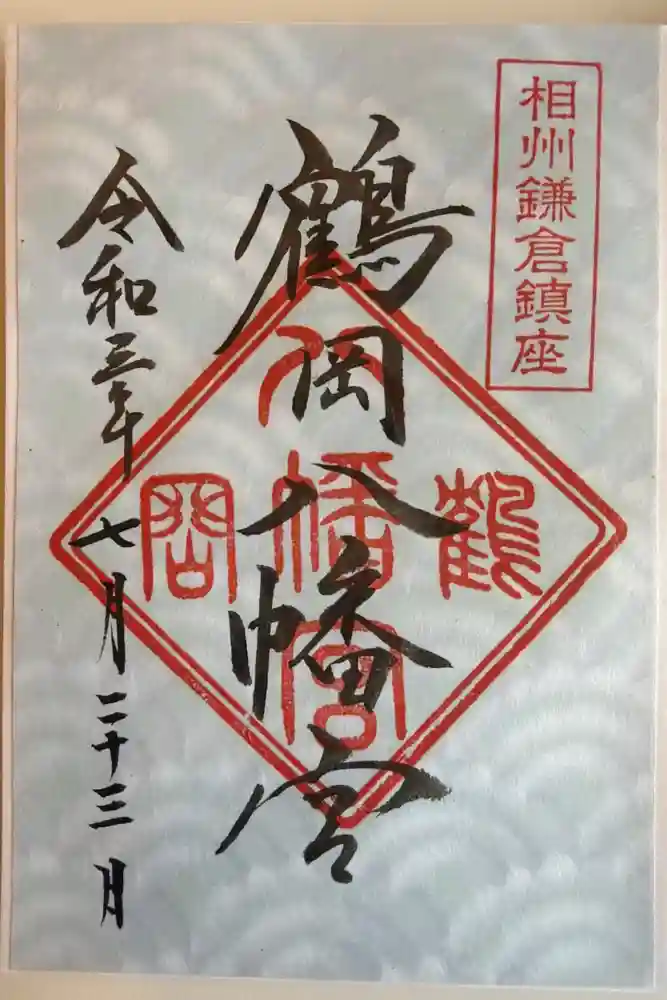 相州鎌倉鎮座
鶴岡八幡宮
鶴
八幡宮
岡
令和三年七月二十三日